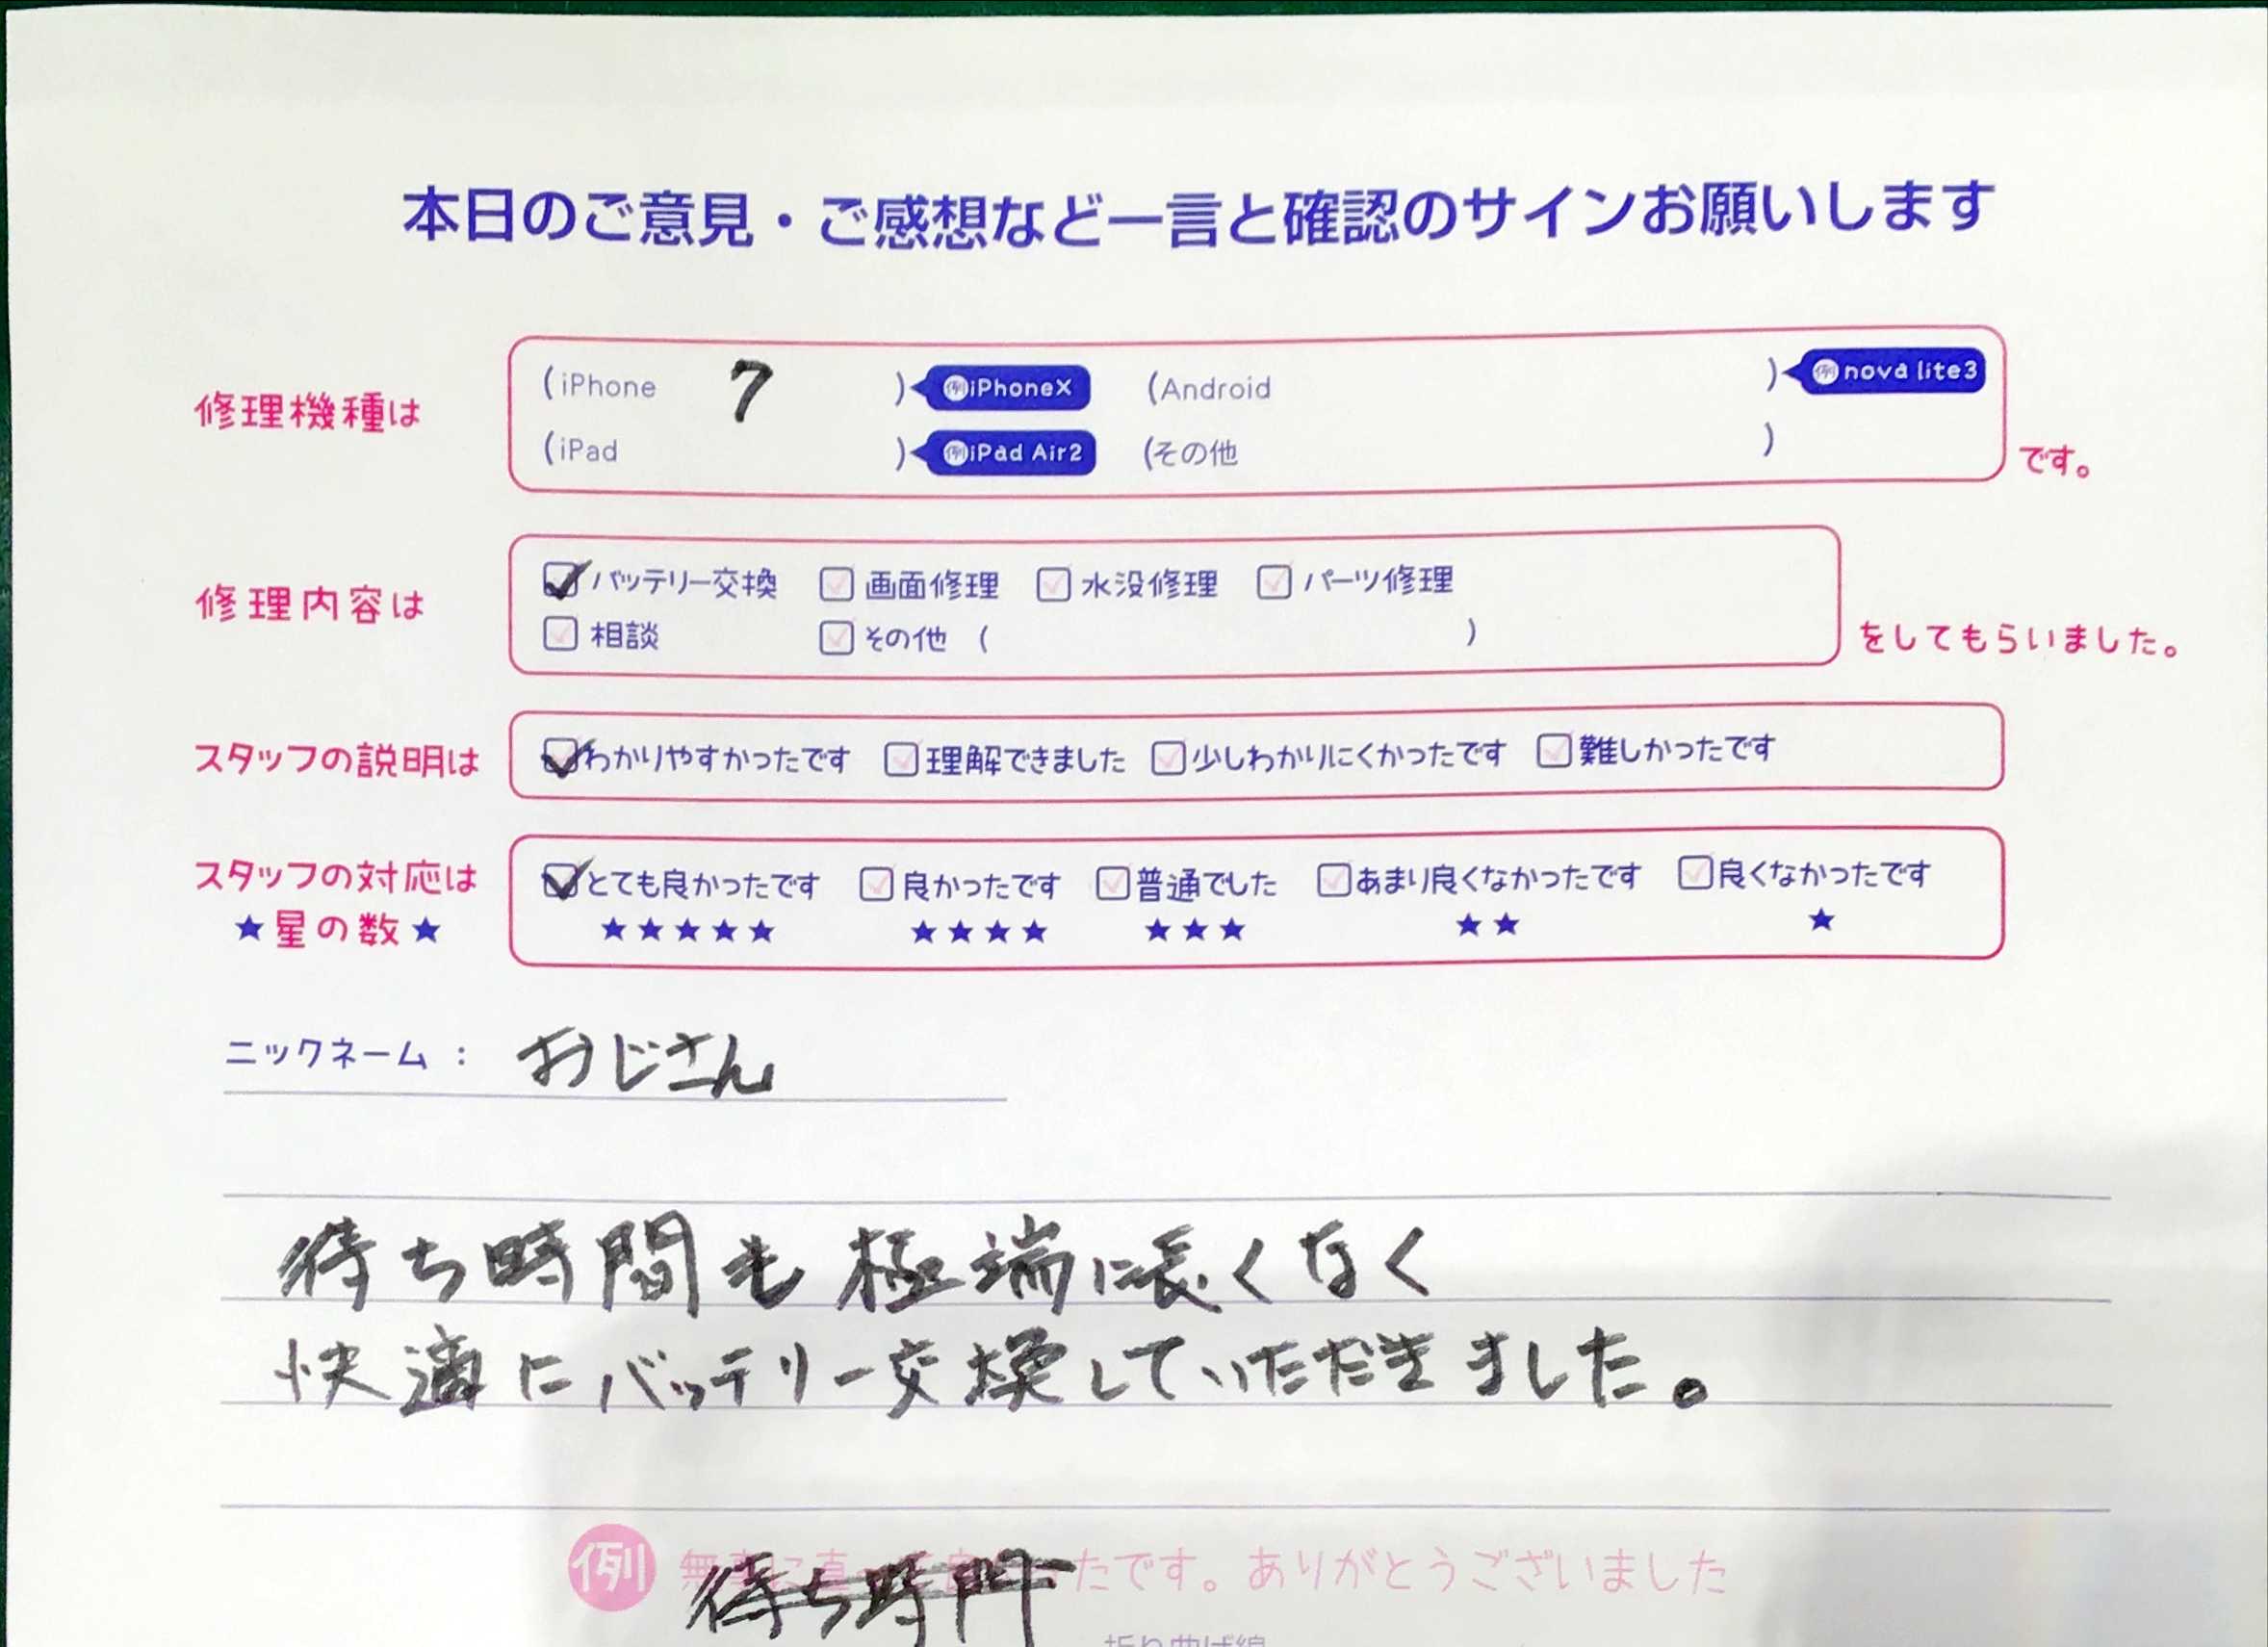 本日のご意見・ご感想など一言と確認のサインお願いします
修理機種は (iPhone 7 ) 例iPhoneX (Android ) 例nova lite3
(iPad ) 例iPad Air2 (その他 ) です。
修理内容は バッテリー交換 画面修理 水没修理 パーツ修理
相談 その他 ( ) をしてもらいました。
スタッフの説明は わかりやすかったです 理解できました 少しわかりにくかったです 難しかったです
スタッフの対応は とても良かったです 良かったです 普通でした あまり良くなかったです 良くなかったです
★星の数★ ★★★★★ ★★★★ ★★★ ★★ ★
ニックネーム : おじさん
待ち時間も極端に長くなく
快適にバッテリー交換していただきました。
例 無事に直 たです。ありがとうございました
待ち時
折り曲げ線